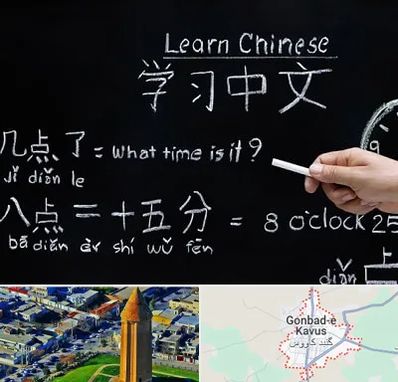 Learn Chinese
学习中文
几点了 = what time is it?
jǐ diǎn le
八点二十五分 = 8 o'clock 25
bā diǎn èr shí wǔ fēn
9
diǎn 上
Gonbad-e
Kavus
گنبد کاووس